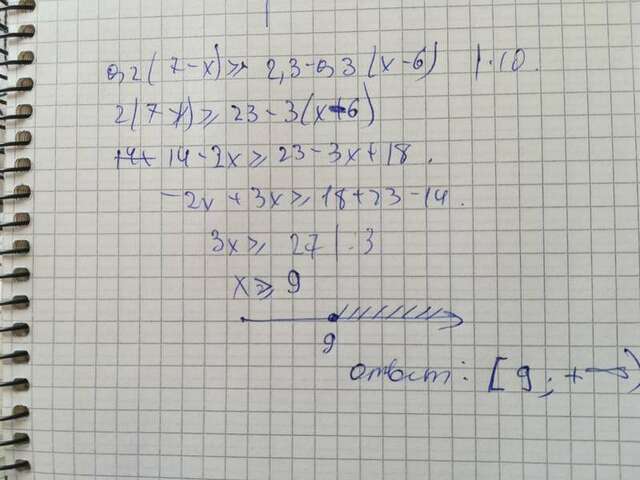 0,2(7-x)⩾ 2,3-0,3(x-6) |·10.
2(7-x)⩾ 23-3(x-6)
14+ 14-2x⩾ 23-3x+18.
-2x+3x⩾ 18+23-14.
3x⩾ 27 | .3
x⩾ 9
9
ответ: [9; +∞)